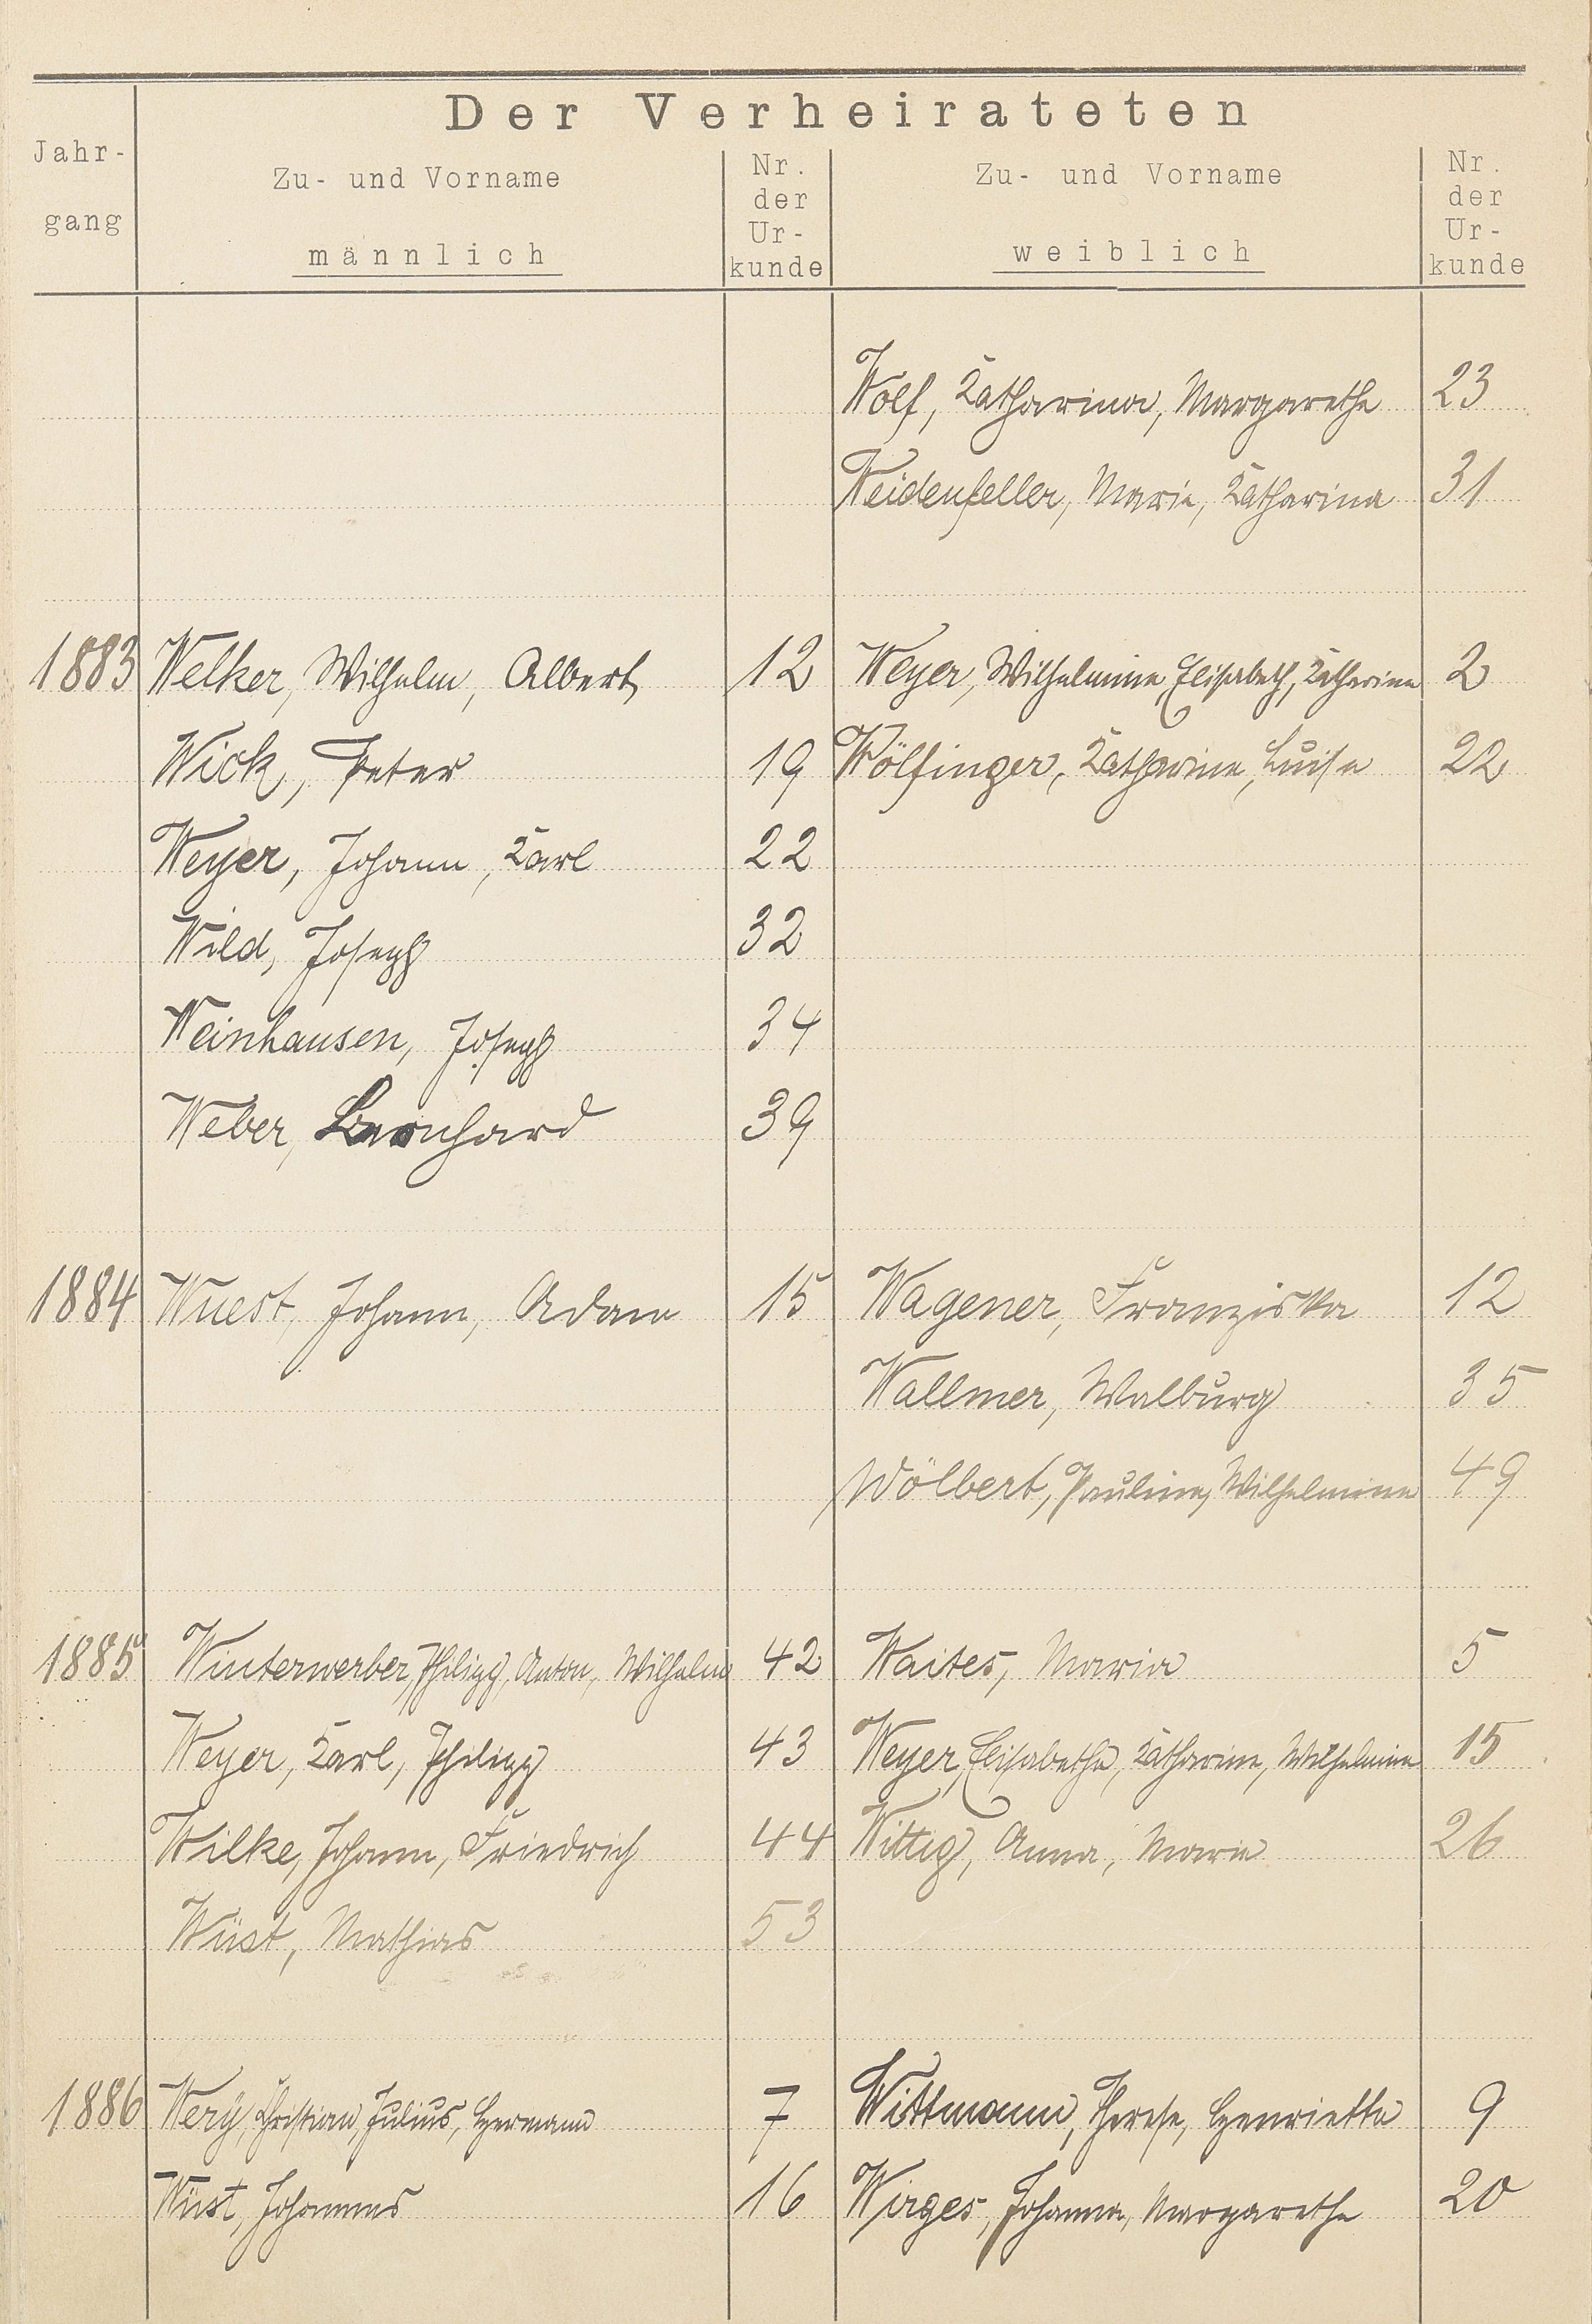 Der Verheirateten
Jahr-
gang
Zu- und Vorname
männlich
Nr.
der
Ur-
kunde
Zu- und Vorname
weiblich
Nr.
der
Ur-
kunde
Wolf, Katharina, Margarethe 23
Weidenfeller, Marie, Katharina 31
1883 Welker, Wilhelm, Albert 12 Weyer, Wilhelmine, Elisabeth, Katharina 2
Wick, Peter 19 Wölfinger, Katharine, Luise 22
Weyer, Johann, Karl 22
Wild, Joseph 32
Weinhausen, Joseph 34
Weber, Bernhard 39
1884 Wuest, Johann, Adam 15 Wagener, Franziska 12
Wallmer, Walburg 35
Wölbert, Pauline, Wilhelmine 49
1885 Winterwerber, Philipp, Anton, Wilhelm 42 Waites, Maria 5
Weyer, Karl, Philipp 43 Weyer, Elisabetha, Katharine, Wilhelmine 15
Wilke, Johann, Friedrich 44 Wittig, Anna, Marie 26
Wüst, Mathias 53
1886 Wery, Christian, Julius, Hermann 7 Wittmann, Therese, Henriette 9
Wüst, Johannes 16 Wirges, Johanna, Margarethe 20